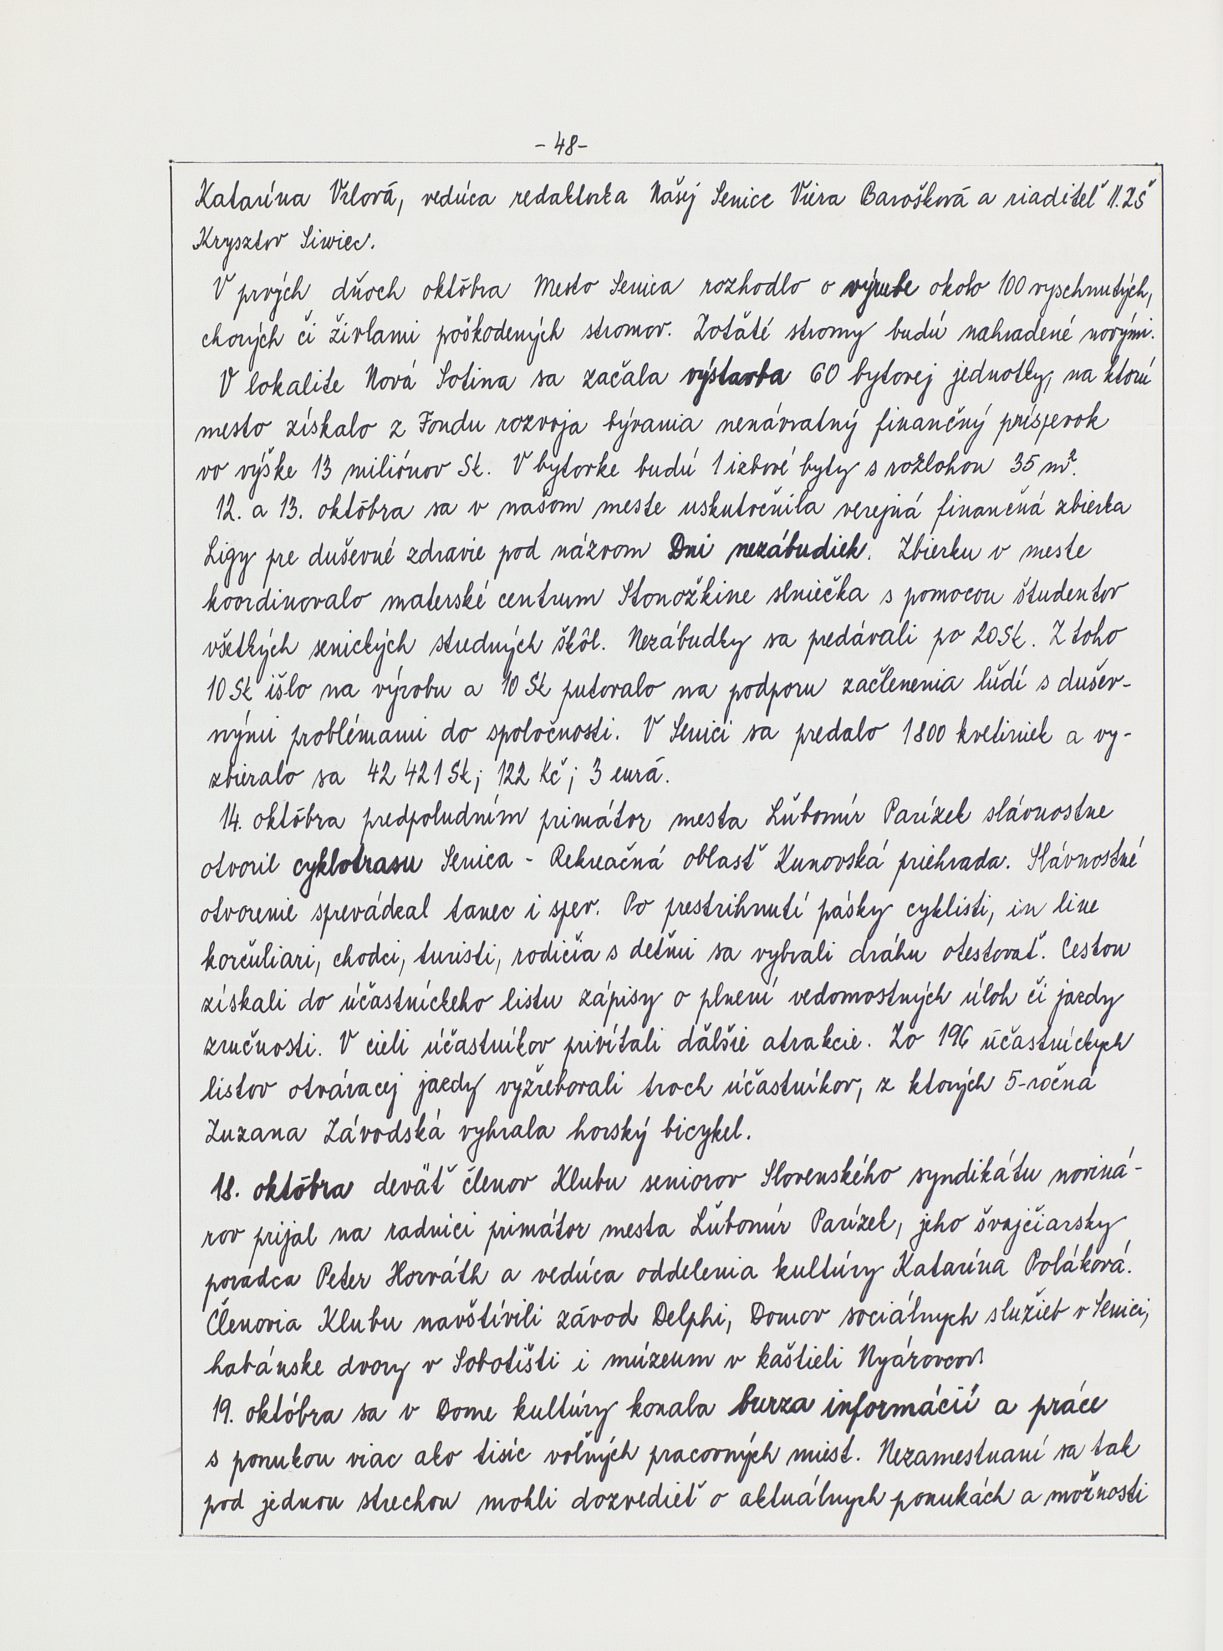 - 48 -
Katarína Vrlová, vedúca redaktorka Našej Senice Viera Barošková a riaditeľ II. ZŠ
Krysztov Siwiec.
V prvých dňoch októbra Mesto Senica rozhodlo o výrube okolo 100 vyschnutých,
chorých či živlami poškodených stromov. Zoťaté stromy budú nahradené novými.
V lokalite Nová Sotina sa začala výstavba 60 bytovej jednotky, na ktorú
mesto získalo z Fondu rozvoja bývania nenávratný finančný príspevok
vo výške 13 miliónov Sk. V bytovke budú 1 izbové byty s rozlohou 35 m².
12. a 13. októbra sa v našom meste uskutočnila verejná finančná zbierka
Ligy pre duševné zdravie pod názvom Dni nezábudiek. Zbierku v meste
koordinovalo materské centrum Stonožkine slniečka s pomocou študentov
všetkých senických stredných škôl. Nezábudky sa predávali po 20 Sk. Z toho
10 Sk išlo na výrobu a 10 Sk putovalo na podporu začlenenia ľudí s dušev-
nými problémami do spoločnosti. V Senici sa predalo 1800 kvetiniek a vy-
zbieralo sa 42 421 Sk; 122 Kč; 3 eurá.
14. októbra predpoludním primátor mesta Ľubomír Parízek slávnostne
otvoril cyklotrasu Senica - Rekreačná oblasť Kunovská priehrada. Slávnostné
otvorenie sprevádzal tanec i spev. Po prestrihnutí pásky cyklisti, in line
korčuliari, chodci, turisti, rodičia s deťmi sa vybrali dráhu otestovať. Cestou
získali do účastníckeho listu zápisy o plnení vedomostných úloh či jazdy
zručnosti. V cieli účastníkov privítali ďalšie atrakcie. Zo 196 účastníckych
listov otváracej jazdy vyžrebovali troch účastníkov, z ktorých 5-ročná
Zuzana Závodská vyhrala horský bicykel.
18. októbra deväť členov Klubu seniorov Slovenského syndikátu noviná-
rov prijal na radnici primátor mesta Ľubomír Parízek, jeho švajčiarsky
poradca Peter Horváth a vedúca oddelenia kultúry Katarína Poláková.
Členovia Klubu navštívili závod Delphi, Domov sociálnych služieb v Senici,
habánske dvory v Sobotišti i múzeum v kaštieli Nyárovcov.
19. októbra sa v Dome kultúry konala burza informácií a práce
s ponukou viac ako tisíc voľných pracovných miest. Nezamestnaní sa tak
pod jednou strechou mohli dozvedieť o aktuálnych ponukách a možnosti